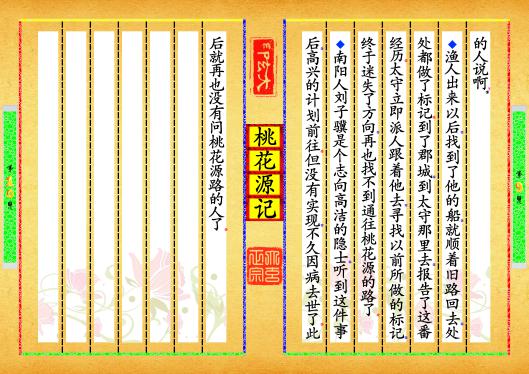 的人说啊。
◆渔人出来以后找到了他的船就顺着旧路回去处
处都做了标记。到了郡城到太守那里去报告了这番
经历。太守立即派人跟着他去寻找以前所做的标记
终于迷失了方向再也找不到通往桃花源的路了。
◆南阳人刘子骥是个志向高洁的隐士。听到这件事
后高兴的计划前往。但没有实现。不久因病去世了此
桃花源记
后就再也没有问桃花源路的人了。